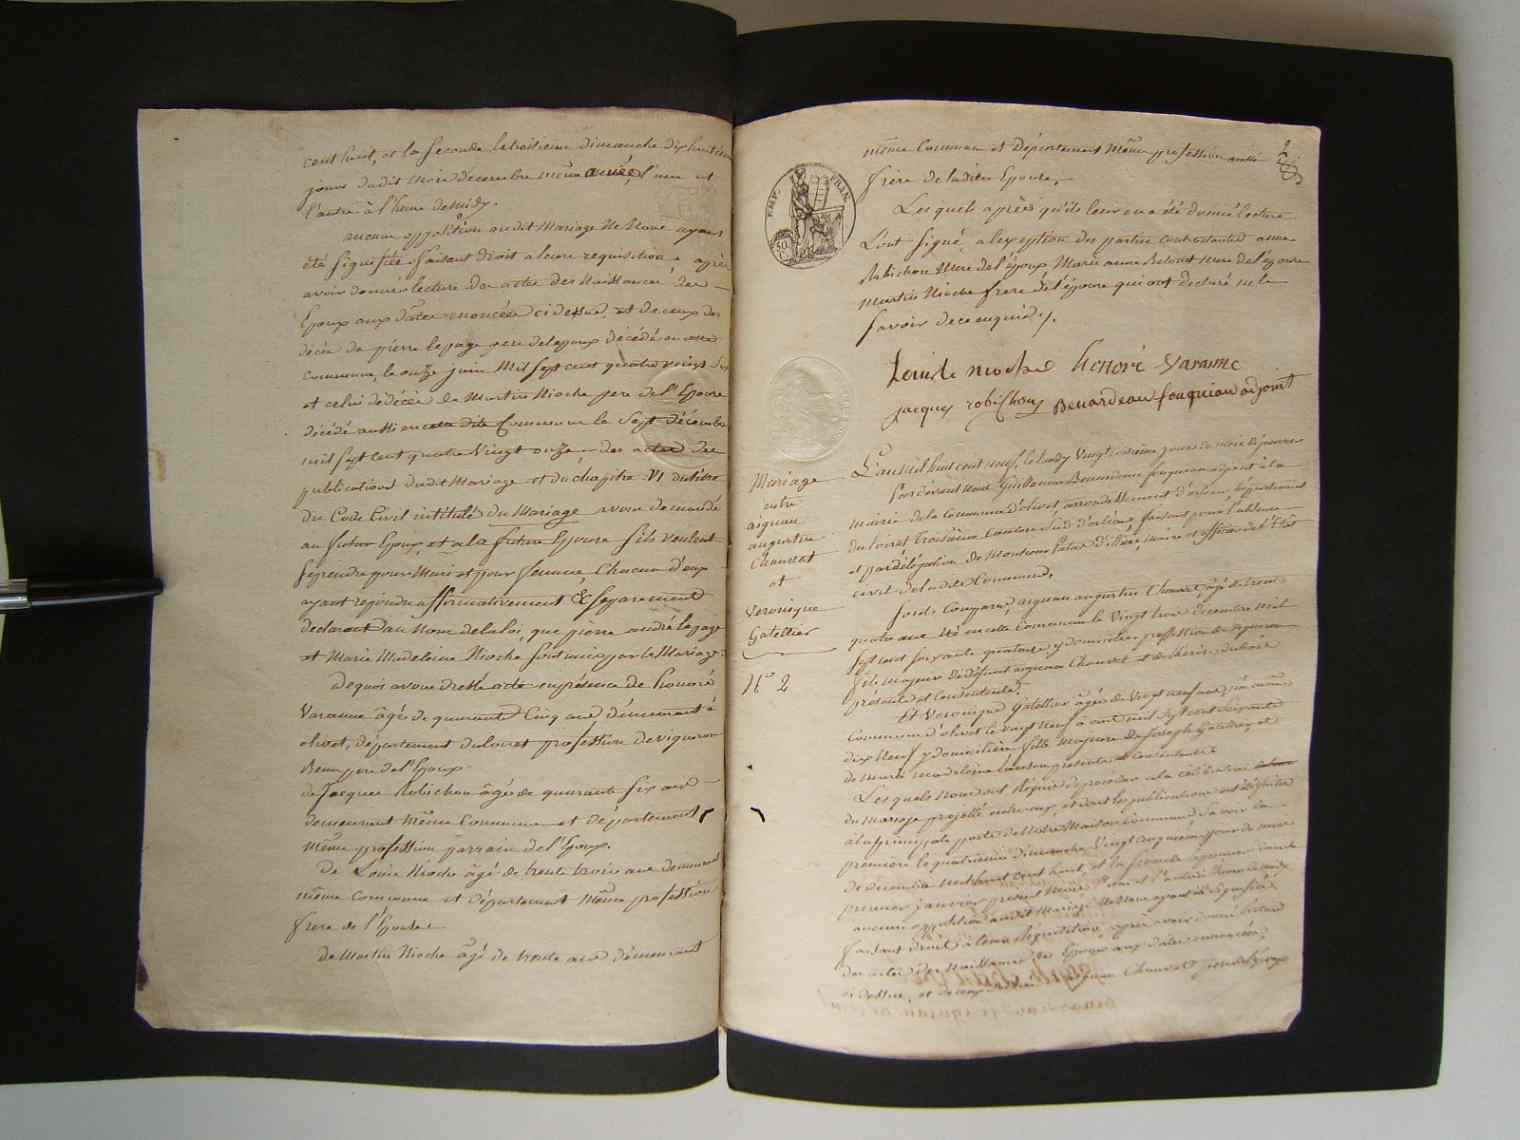 cent huit, et la seconde le troisieme dimanche dix huitieme
jour dudit mois de decembre même année, l'une et
l'autre à l'heure de midy.
aucune opposition audit Mariage ne Nous ayant
été signifiée faisant droit a leur requisition, après
avoir donné lecture des actes des Naissances des
Epoux aux dates enoncées ci dessus, et de ceux du
décès de pierre lepage pere de lepoux décédé en cette
commune, le onze juin Mil sept cent quatre vingt dix
et celui de décès de Martin Nioche pere de l'Epouse
décédé aussi en cette dite Commune le Sept décembre
mil sept cent quatre Vingt onze, des actes des
publications dudit Mariage et du chapitre VI du titre
du Code Civil intitulé du Mariage avons demandé
au futur Epoux, et a la future Epouse s'ils veulent
se prendre pour Mari et pour femme, Chacun d'eux
ayant repondu affirmativement & separement
declarons au Nom de la loi, que pierre andré lepage
et Marie Madeleine Nioche sont unis par le Mariage.
de quoi avons dressé acte en présence de honoré
Varanne âgé de quarante Cinq ans demeurant à
olivet, département du loiret profession de vigneron
Beau pere de l'Epoux.
de Jacques Robichon âgé de quarante six ans
demeurant même Commune et département
même profession parrain de l'Epoux.
De Louis Nioche âgé de trente trois ans demeurant
même Commune et département même profession
frere de l'Epouse
De Martin Nioche âgé de trente ans demeurant
même Commune et Département même profession aussi
frère de ladite Epouse.
2
Lesquels après qu'ils leur en a été donné lecture
L'ont signé, a l'exception des parties contractantes anne
Robichon Mere de l'époux Marie anne Belout mere de l'épouse
Martin Nioche frere de l'épouse qui ont declaré ne le
savoir de ce enquis./.
EMP. FRAN.
50
C.
Louis Nioche honoré Varanne
jacques robichon Benardeau fouqueau adjoint
Mariage
entre
aignan
augustin
Chauvet
et
Veronique
Gatellier
N° 2
L'an mil huit cent neuf, le lundy Vingt troisieme jour du mois de janvier
Pardevant Nous Guillaume Benardeau fouqueau adjoint à la
mairie de la Commune d'olivet, arrondissement d'orleans, département
du loiret Troisième Canton Sud d'orléans, faisant pour l'absence
et par délégation de Monsieur maire et officier de l'Etat
civil de ladite Commune.
Sont Comparus, aignan augustin Chauvet âgé de trente
quatre ans Né en cette Commune le Vingt trois décembre mil
sept cent soixante quatorze y domicilié profession de vigneron
fils majeur de défunt aignan Chauvet et de therese dubois
présente et consentante.
Et Veronique Gatellier âgée de Vingt neuf ans, née même
Commune d'olivet le vingt neuf août mil sept cent soixante
dix Neuf y domiciliée, fille majeure de joseph Gatellier, et
de marie madeleine presente et consentante
Lesquels nous ont Requis de proceder a la Célébration
du Mariage projetté entr'eux, et dont les publications ont été faites
à la principale porte de Notre Maison Commune, Savoir la
premiere le quatrieme dimanche Vingt cinquieme jour du mois
de décembre mil huit cent huit, et la seconde le
premier janvier present mois, l'une et l'autre à l'heure de midy
aucune opposition audit Mariage Ne Nous ayant été signifiée
faisant droit à leur Requisition, après avoir donné lecture
des actes des Naissances des Epoux aux dates enoncées
ci dessus, et de ceux Chauvet pere de l'epoux